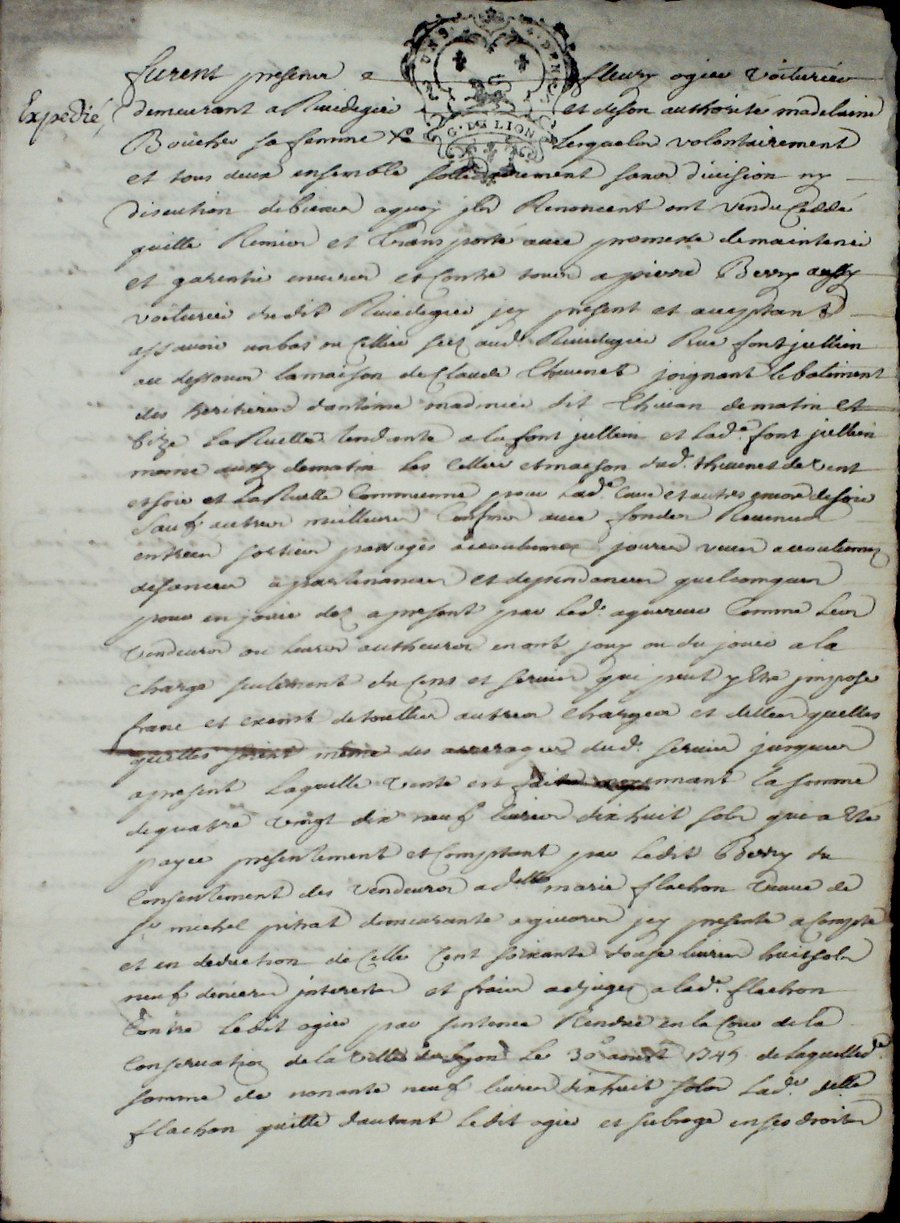 furent presents fleury ogier Voiturier
Expedié
demeurant a Rivedegier et de son authorité madelaine
G. DE LION
Boucher sa femme lesquels volontairement
et tous deux ensemble solidairement sans division ny
discution de biens a quoy ils Renoncent ont vendu Ceddé
quitté Remis et Transporté avec promesse de maintenir
et garentir envers et Contre tous a pierre Berry aussy
voiturier dudit Rivedegier icy present et acceptant
assavoir un bas ou Cellier sciz aud. Rivedegier Rue font jullien
au dessous la maison de Claude Thevenet joignant le batiment
des heritiers d'antoine madinier dit de matin et
bize La Ruelle tendante a la font jullien et lad.e font jullien
mesme aussy de matin les Cellier et maison dud. thevenet de vent
et soir et La Ruelle Commune pour lad.e Cave et autres encore de soir
Sauf autres meilleurs Confins avec fonds Revenus
entrées sorties passages accoutumez jours vues accoutumez
aisances apartenances et dependances quelconques
pour en jouir dez apresent par led. aquereur Comme Les
vendeurs ou leurs autheurs en ont jouy ou du jouir a la
charge seulement du Cens et servis qui peut y Etre imposé
franc et exempt de touttes autres charges et dettes quelles
quelles soient même des arrerages dud. servis jusques
apresent Laquelle vente est faite moyennant la somme
de quatre vingt dix neuf livres dix huit sols qui a Eté
payée presentement et Comptant par ledit Berry du
Consentement des vendeurs a delle marie flachon veuve de
sr michel pitrat demeurante a givors icy presente a Compte
et en deduction de Celle Cent soixante douse livres huit sols
neuf deniers interests et frais adjugez a lad.e flachon
Contre ledit ogier par sentence Rendue en la Cour de la
Conservation de la ville de Lyon Le 30e aoust 1749 de laquelle
somme de nonante neuf livres dix huit sols lad.e delle
flachon quitte d'autant ledit ogier et subroge en ses droits